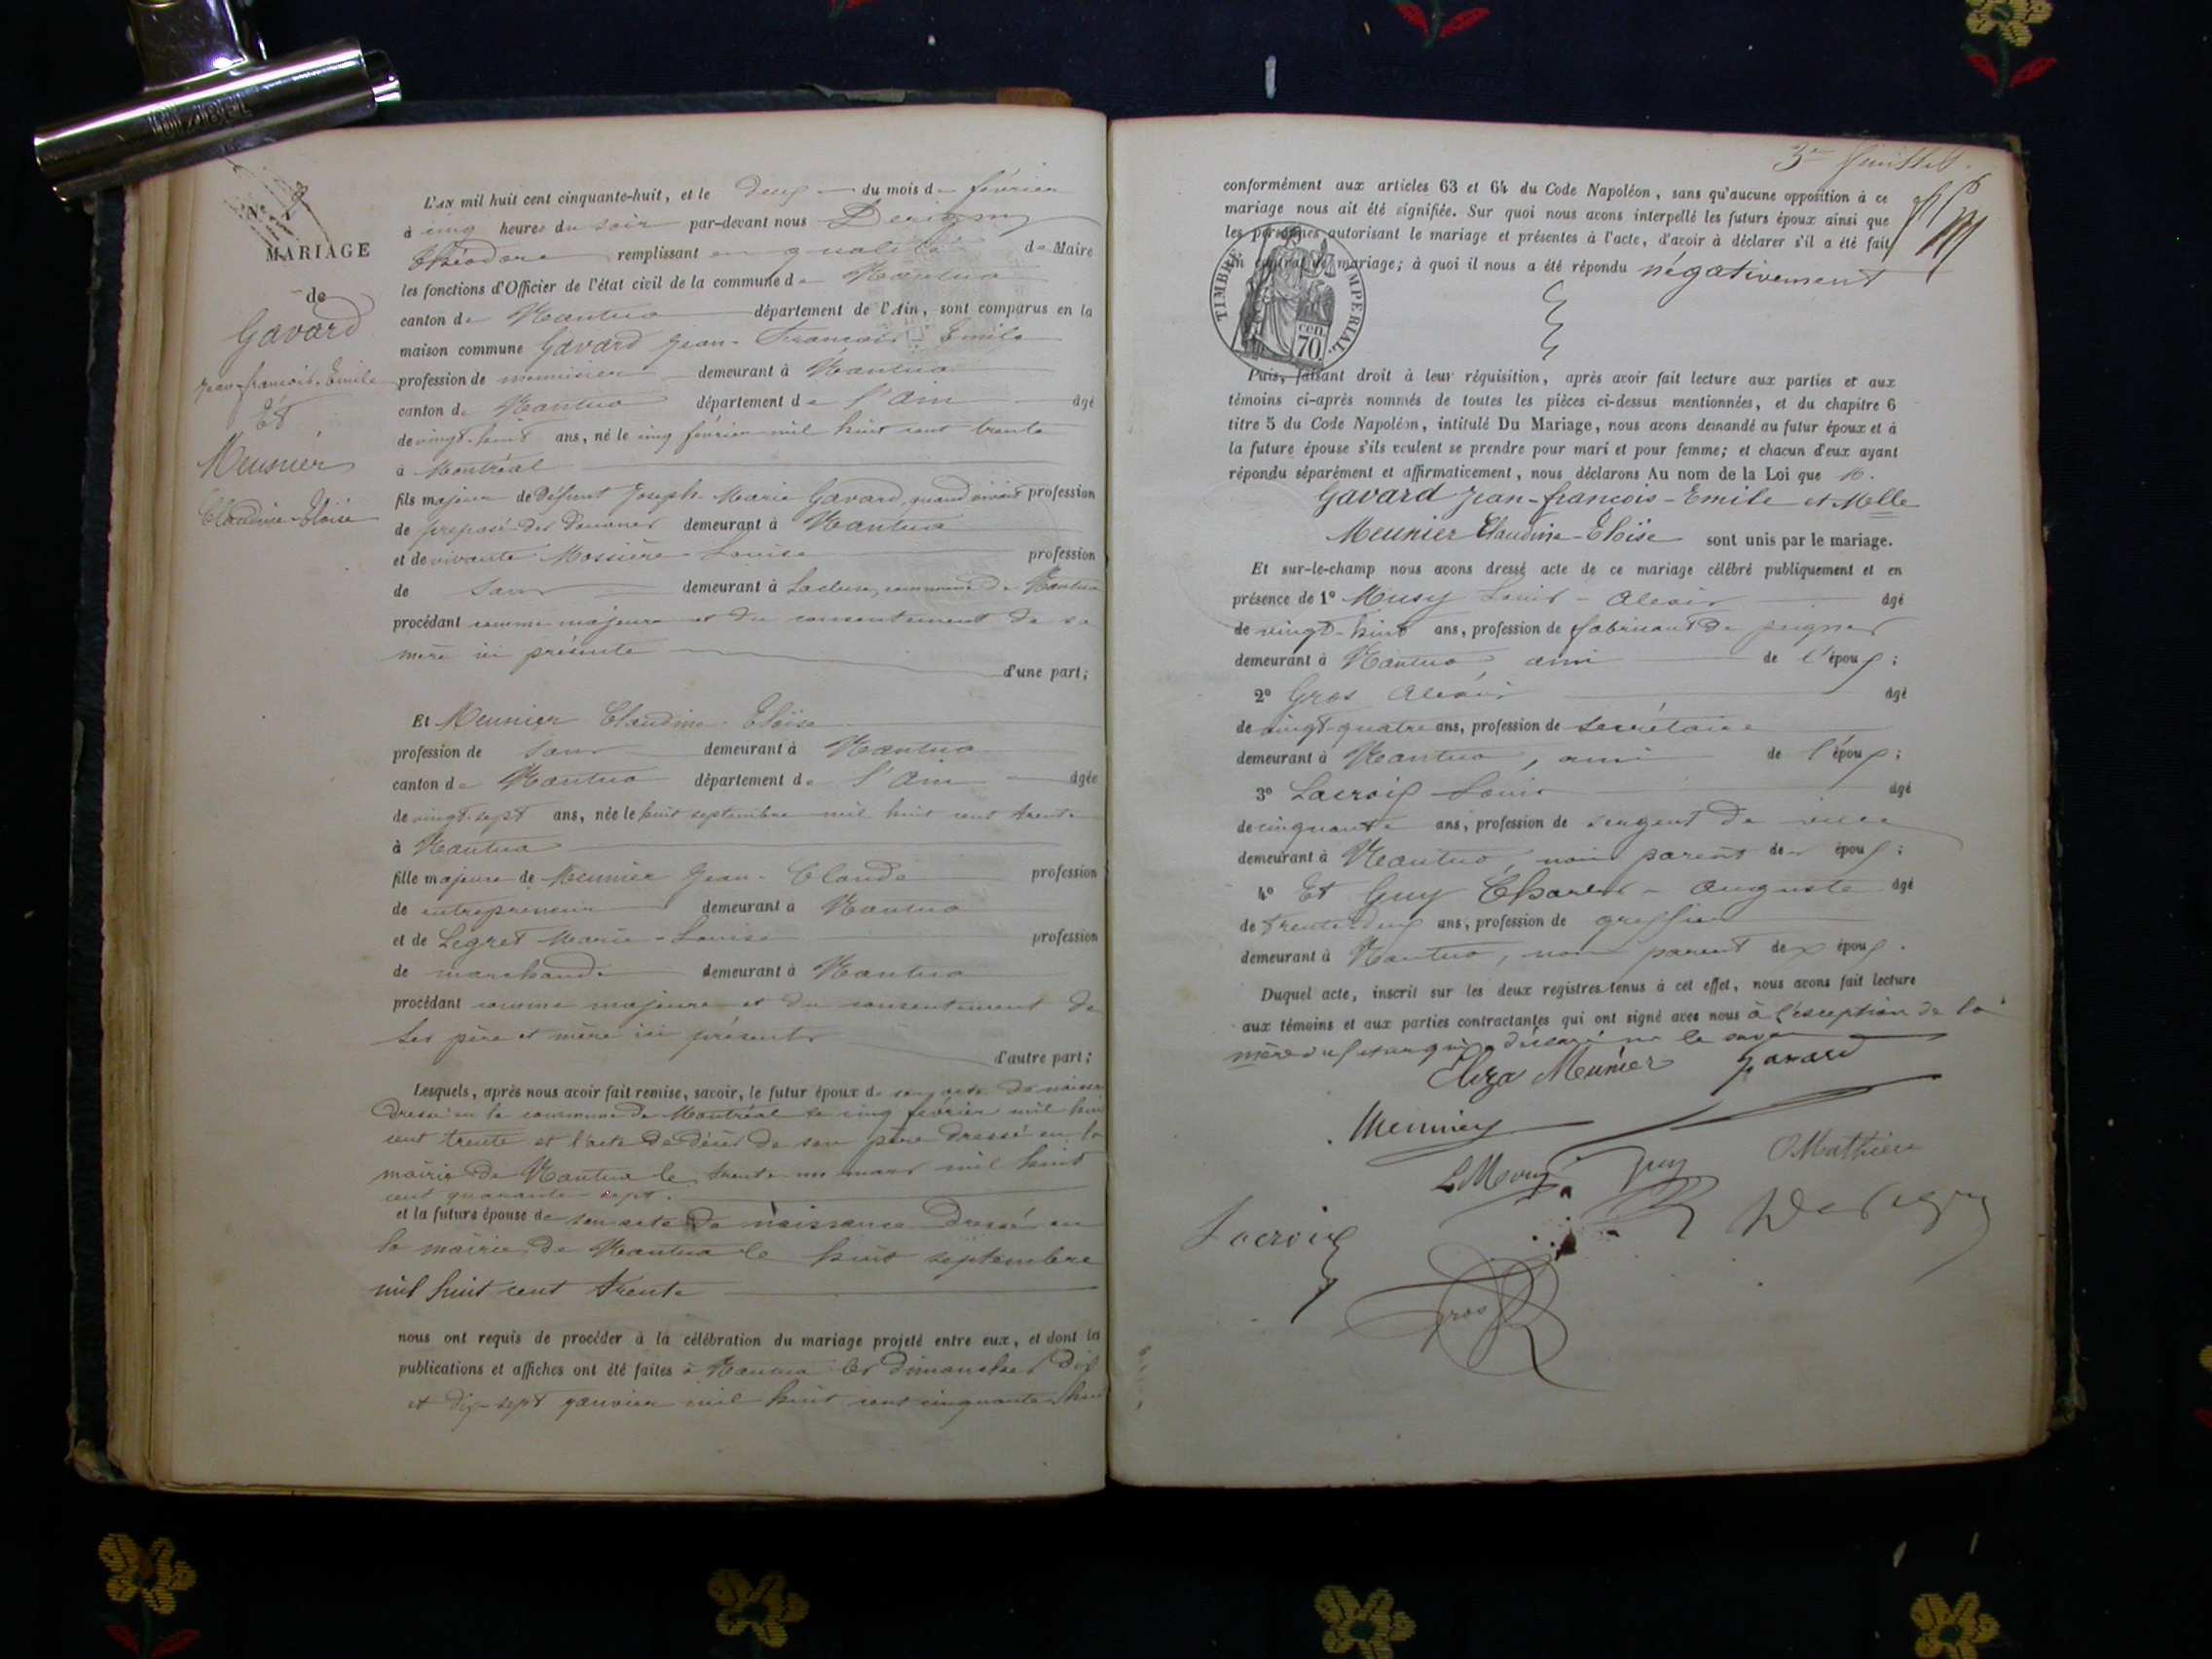 MARIAGE
de
Gavard
Jean-françois-Emile
Et
Meunier
Claudine-Eloïse
L'AN mil huit cent cinquante-huit, et le deux du mois de février
à cinq heures du soir par-devant nous Derigny
Théodore remplissant en qualité de Maire
les fonctions d'Officier de l'état civil de la commune de Nantua
canton de Nantua département de l'Ain, sont comparus en la
maison commune Gavard Jean-François-Emile
profession de menuisier demeurant à Nantua
canton de Nantua département de l'Ain âgé
de vingt-huit ans, né le cinq février mil huit cent trente
à Montréal
fils majeur de Défunt Joseph-Marie Gavard, quand vivait profession
de preposé des Douanes demeurant à Nantua
et de vivante Mossière Louise profession
de sans demeurant à Lacluse, commune de Nantua
procédant comme majeur et du consentement de sa
mère ici présente
d'une part;
Et Meunier Claudine-Eloïse
profession de sans demeurant à Nantua
canton de Nantua département de l'Ain âgée
de vingt-sept ans, née le huit septembre mil huit cent trente
à Nantua
fille majeure de Meunier Jean-Claude profession
de entrepreneur demeurant à Nantua
et de Legret Marie-Louise profession
de marchande demeurant à Nantua
procédant comme majeure et du consentement de
ses père et mère ici présents
d'autre part;
Lesquels, après nous avoir fait remise, savoir, le futur époux de son acte de naissance
dressé en la commune de Montréal le cinq février mil huit
cent trente et l'acte de décès de son père dressé en la
mairie de Nantua le trente un mars mil huit
cent quarante-sept.
et la future épouse de son acte de naissance dressé en
la mairie de Nantua le huit septembre
mil huit cent trente
nous ont requis de procéder à la célébration du mariage projeté entre eux, et dont les
publications et affiches ont été faites à Nantua les dimanches dix
et dix-sept janvier mil huit cent cinquante-huit
conformément aux articles 63 et 64 du Code Napoléon, sans qu'aucune opposition à ce
mariage nous ait été signifiée. Sur quoi nous avons interpellé les futurs époux ainsi que
les personnes autorisant le mariage et présentes à l'acte, d'avoir à déclarer s'il a été fait
un contrat de mariage; à quoi il nous a été répondu négativement
TIMBRE IMPERIAL.
cen. 70.
Puis, faisant droit à leur réquisition, après avoir fait lecture aux parties et aux
témoins ci-après nommés de toutes les pièces ci-dessus mentionnées, et du chapitre 6
titre 5 du Code Napoléon, intitulé Du Mariage, nous avons demandé au futur époux et à
la future épouse s'ils veulent se prendre pour mari et pour femme; et chacun d'eux ayant
répondu séparément et affirmativement, nous déclarons Au nom de la Loi que
Gavard Jean-françois-Emile et Melle
Meunier Claudine-Eloïse sont unis par le mariage.
Et sur-le-champ nous avons dressé acte de ce mariage célébré publiquement et en
présence de 1° Musy Louis-Alexis âgé
de vingt-huit ans, profession de fabricant de peignes
demeurant à Nantua, ami de l'époux;
2° Gros Alexis âgé
de vingt-quatre ans, profession de secrétaire
demeurant à Nantua, ami de l'époux;
3° Lacroix Louis âgé
de cinquante ans, profession de sergent de ville
demeurant à Nantua, non parent des époux;
4° Et Guy Charles-Auguste âgé
de trente-deux ans, profession de greffier
demeurant à Nantua, non parent des époux.
Duquel acte, inscrit sur les deux registres tenus à cet effet, nous avons fait lecture
aux témoins et aux parties contractantes qui ont signé avec nous à l'exception de la
mère du futur qui a déclaré ne le savoir
Eliza Meunier Gavard
Meunier
L Musy Guy O Mathieu
Lacroix Derigny
Gros